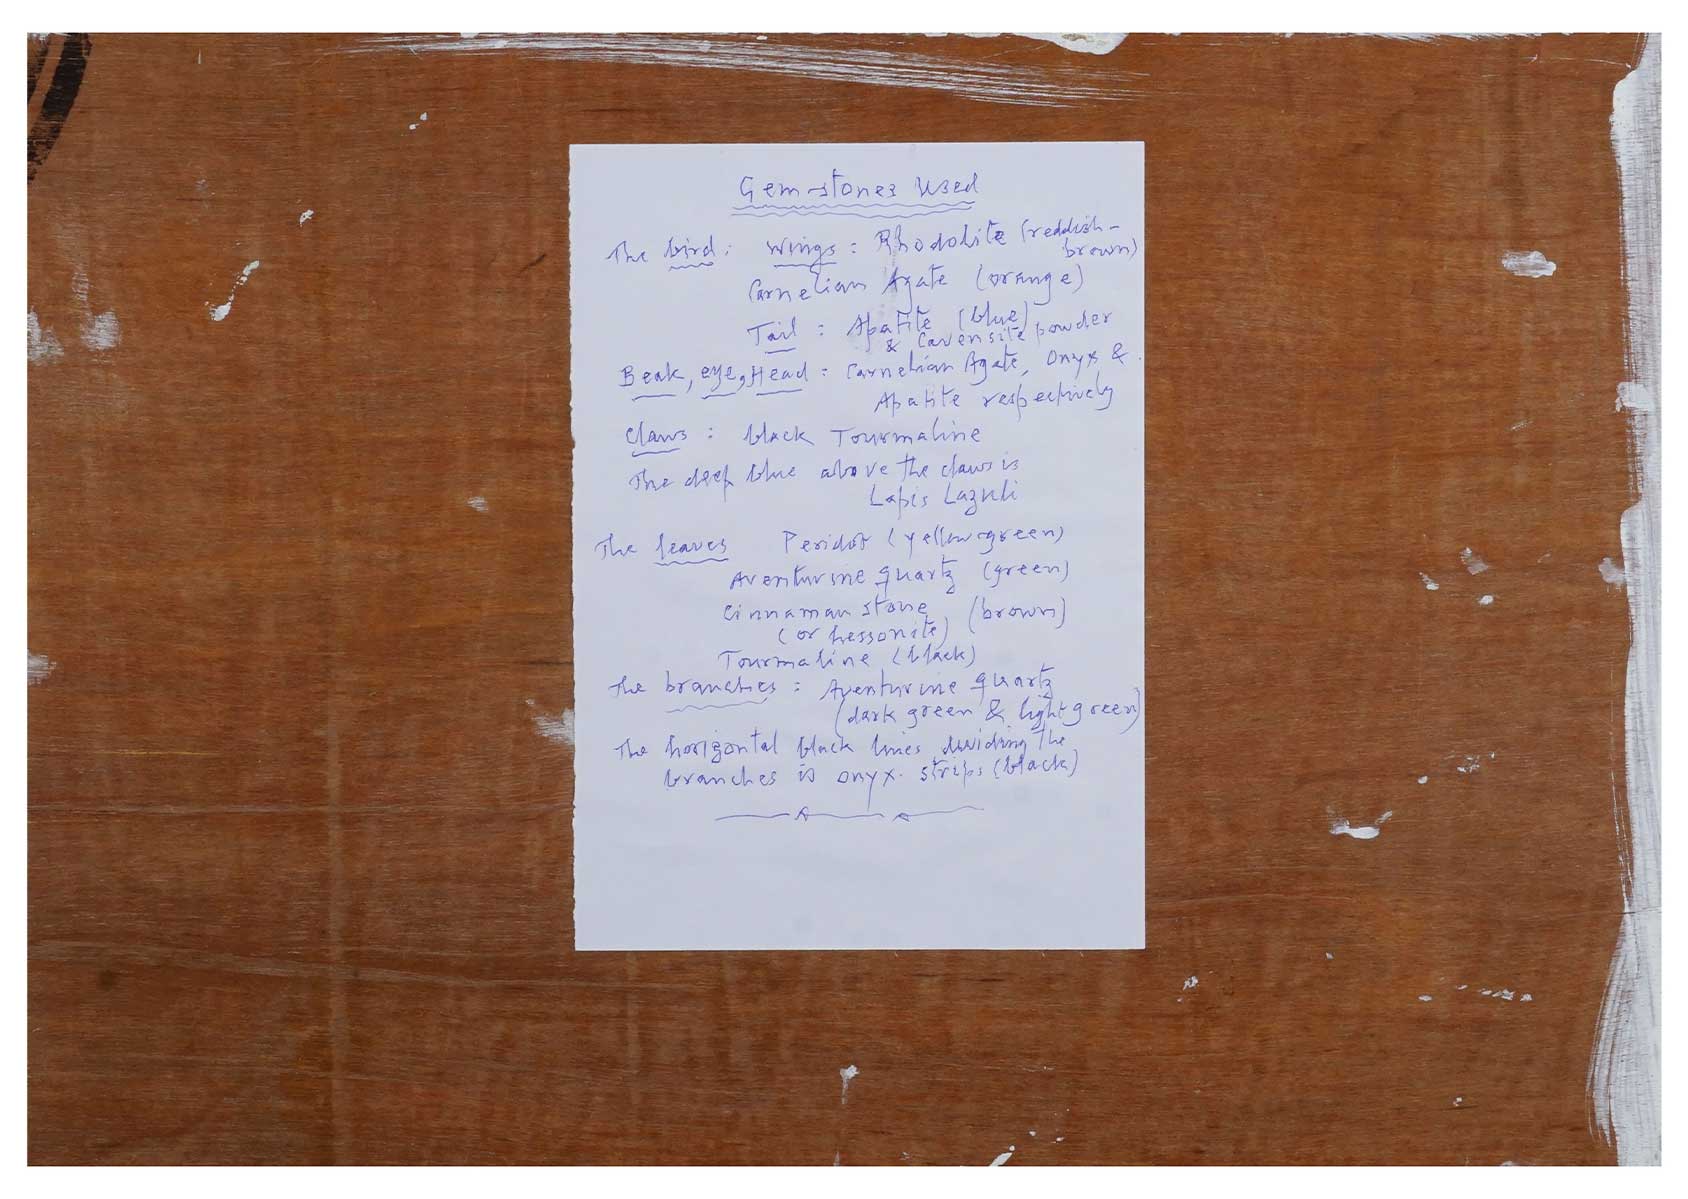 Gem-stones Used
The bird: Wings: Rhodolite (reddish-
brown)
Carnelian Agate (orange)
Tail: Apatite (blue)
& Cavensite powder
Beak, eye, Head: Carnelian Agate, Onyx &
Apatite respectively
Claws: black Tourmaline
The deep blue above the claws is
Lapis Lazuli
The leaves Peridot (yellow-green)
Aventurine quartz (green)
Cinnaman stone (brown)
(or hessonite)
Tourmaline (black)
The branches: Aventurine quartz
(dark green & light green)
The horizontal black lines dividing the
branches is onyx. strips (black)